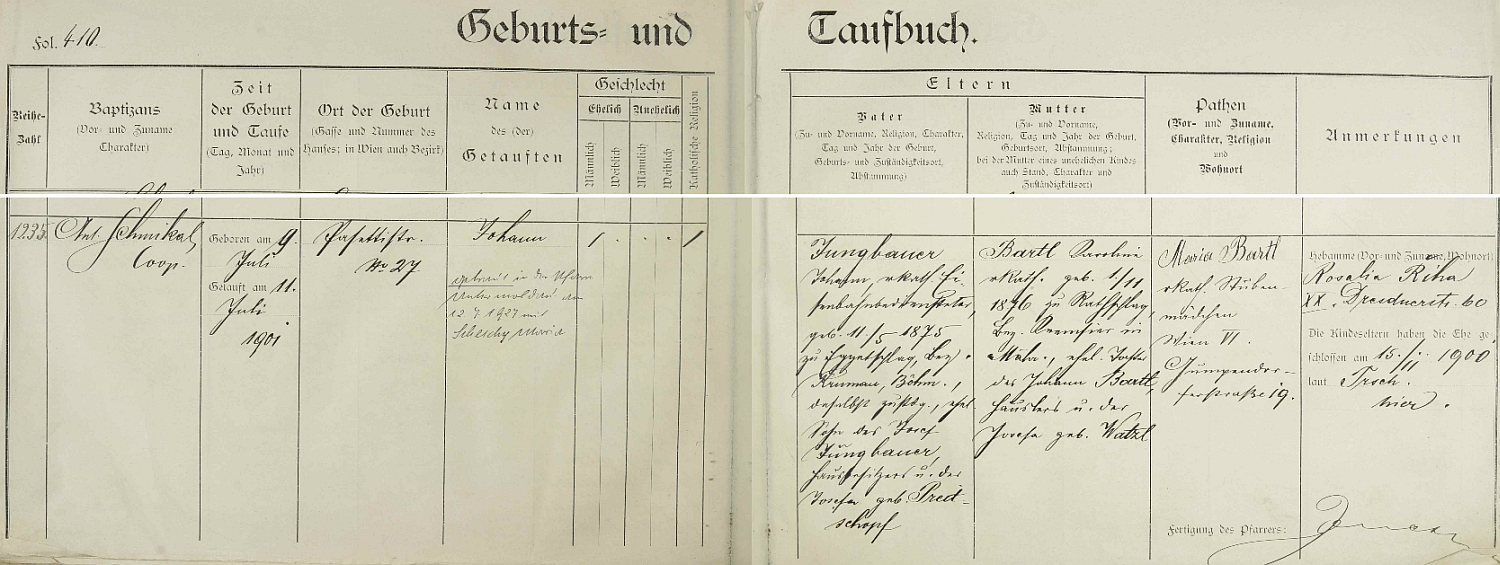 Fol. 410.
Geburts- und Taufbuch.
Reihe-Zahl
Baptizans
(Vor- und Zuname
Charakter)
Zeit
der Geburt
und Taufe
(Tag, Monat und
Jahr)
Ort der Geburt
(Gasse und Nummer des
Hauses; in Wien auch Bezirk)
Name
des (der)
Getauften
Geschlecht
Ehelich
Unehelich
Männlich
Weiblich
Männlich
Weiblich
Katholische Religion
Eltern
Vater
(Zu- und Vorname, Religion, Charakter,
Tag und Jahr der Geburt,
Geburts- und Zuständigkeitsort,
Abstammung)
Mutter
(Zu- und Vorname,
Religion, Tag und Jahr der Geburt,
Geburtsort, Abstammung;
bei der Mutter eines unehelichen Kindes
auch Stand, Charakter und
Zuständigkeitsort)
Pathen
(Vor- und Zuname,
Charakter, Religion
und
Wohnort
Anmerkungen
1235
Ant. Schmikal,
Coop.
Geboren am 9.
Juli
Getauft am 11.
Juli
1901
Pasettistr.
No 27
Johann
getraut in der Pfarre
Untermoldau am
12.7.1927 mit
Maria
Jungbauer
Johann, rkath. Ei-
senbahnbediensteter,
geb. 11/5 1875
zu Eggetschlag, Bez.
Krumau, Böhm.,
daselbst zustdg., ehel.
Sohn des Josef
Jungbauer,
Hausbesitzers u. der
Josefa geb. Preit-
schopf
Bartl Karolina
rkath. geb. 1/11
1876 zu Rathschlag,
Bez. in
Mähr., ehel. Tochter
des Johann Bartl,
Häuslers u. der
Josefa geb. Watzl
Maria Bartl
rkath. Stuben-
mädchen
Wien VI.
Gumpendor-
ferstraße 19.
Hebamme (Vor- und Zuname, Wohnort)
Rosalia Riha
XX. Dresdnerstr. 60
Die Kindeseltern haben die Ehe ge-
schlossen am 15./11 1900
laut Trsch.
hier.
Fertigung des Pfarrers: